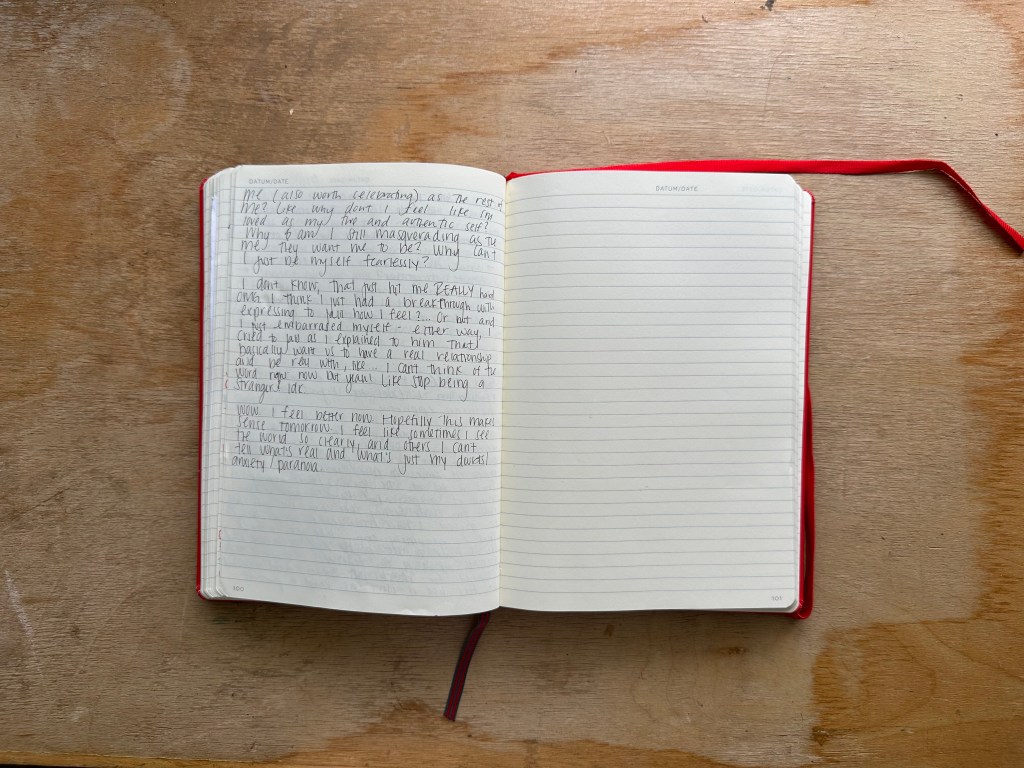 DATUM/DATE
me (also worth celebrating) as the rest of
me? Like why dont I feel like I'm
loved as my true and authentic self?
Why am I still masquerading as the
me they want me to be? Why can't
I just be myself fearlessly?
I dont know, that just hit me REALLY hard
OMG I think I just had a breakthrough with
expressing to you how I feel?... Or but and
I just embarrased myself - either way, I
cried to as I explained to him that I
basically want us to have a real relationship
and be real with, like... I cant think of the
word right now but yeah! Like stop being a
stranger! Idk.
Wow. I feel better now. Hopefully this makes
sense tomorrow. I feel like sometimes I see
the world so clearly and others I can't
tell what's real and what's just my
anxiety/paranoia.
100
DATUM/DATE
101